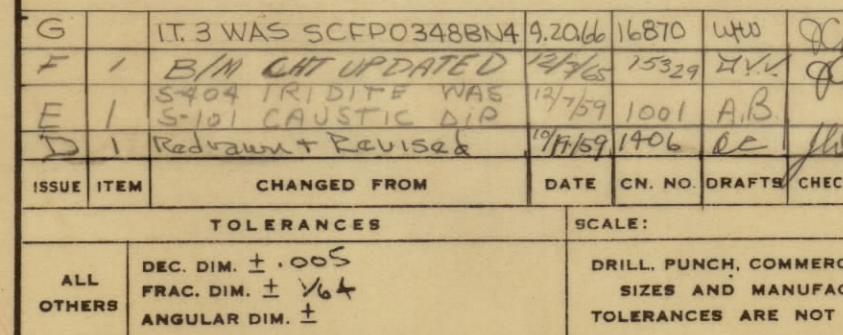 G IT. 3 WAS SCFP0348BN4 9.20.66 16870
F 1 B/M CHT UPDATED 12/7/65 15329
S-404 IRIDITE WAS
E 1 S-101 CAUSTIC DIP 12/7/59 1001 A.B.
D 1 Redrawn + Revised 1406
ISSUE ITEM CHANGED FROM DATE CN. NO. DRAFTS CHEC
TOLERANCES SCALE:
ALL OTHERS
DEC. DIM. ± .005
FRAC. DIM. ± 1/64
ANGULAR DIM. ±
DRILL. PUNCH, COMMERC
SIZES AND MANUFAC
TOLERANCES ARE NOT